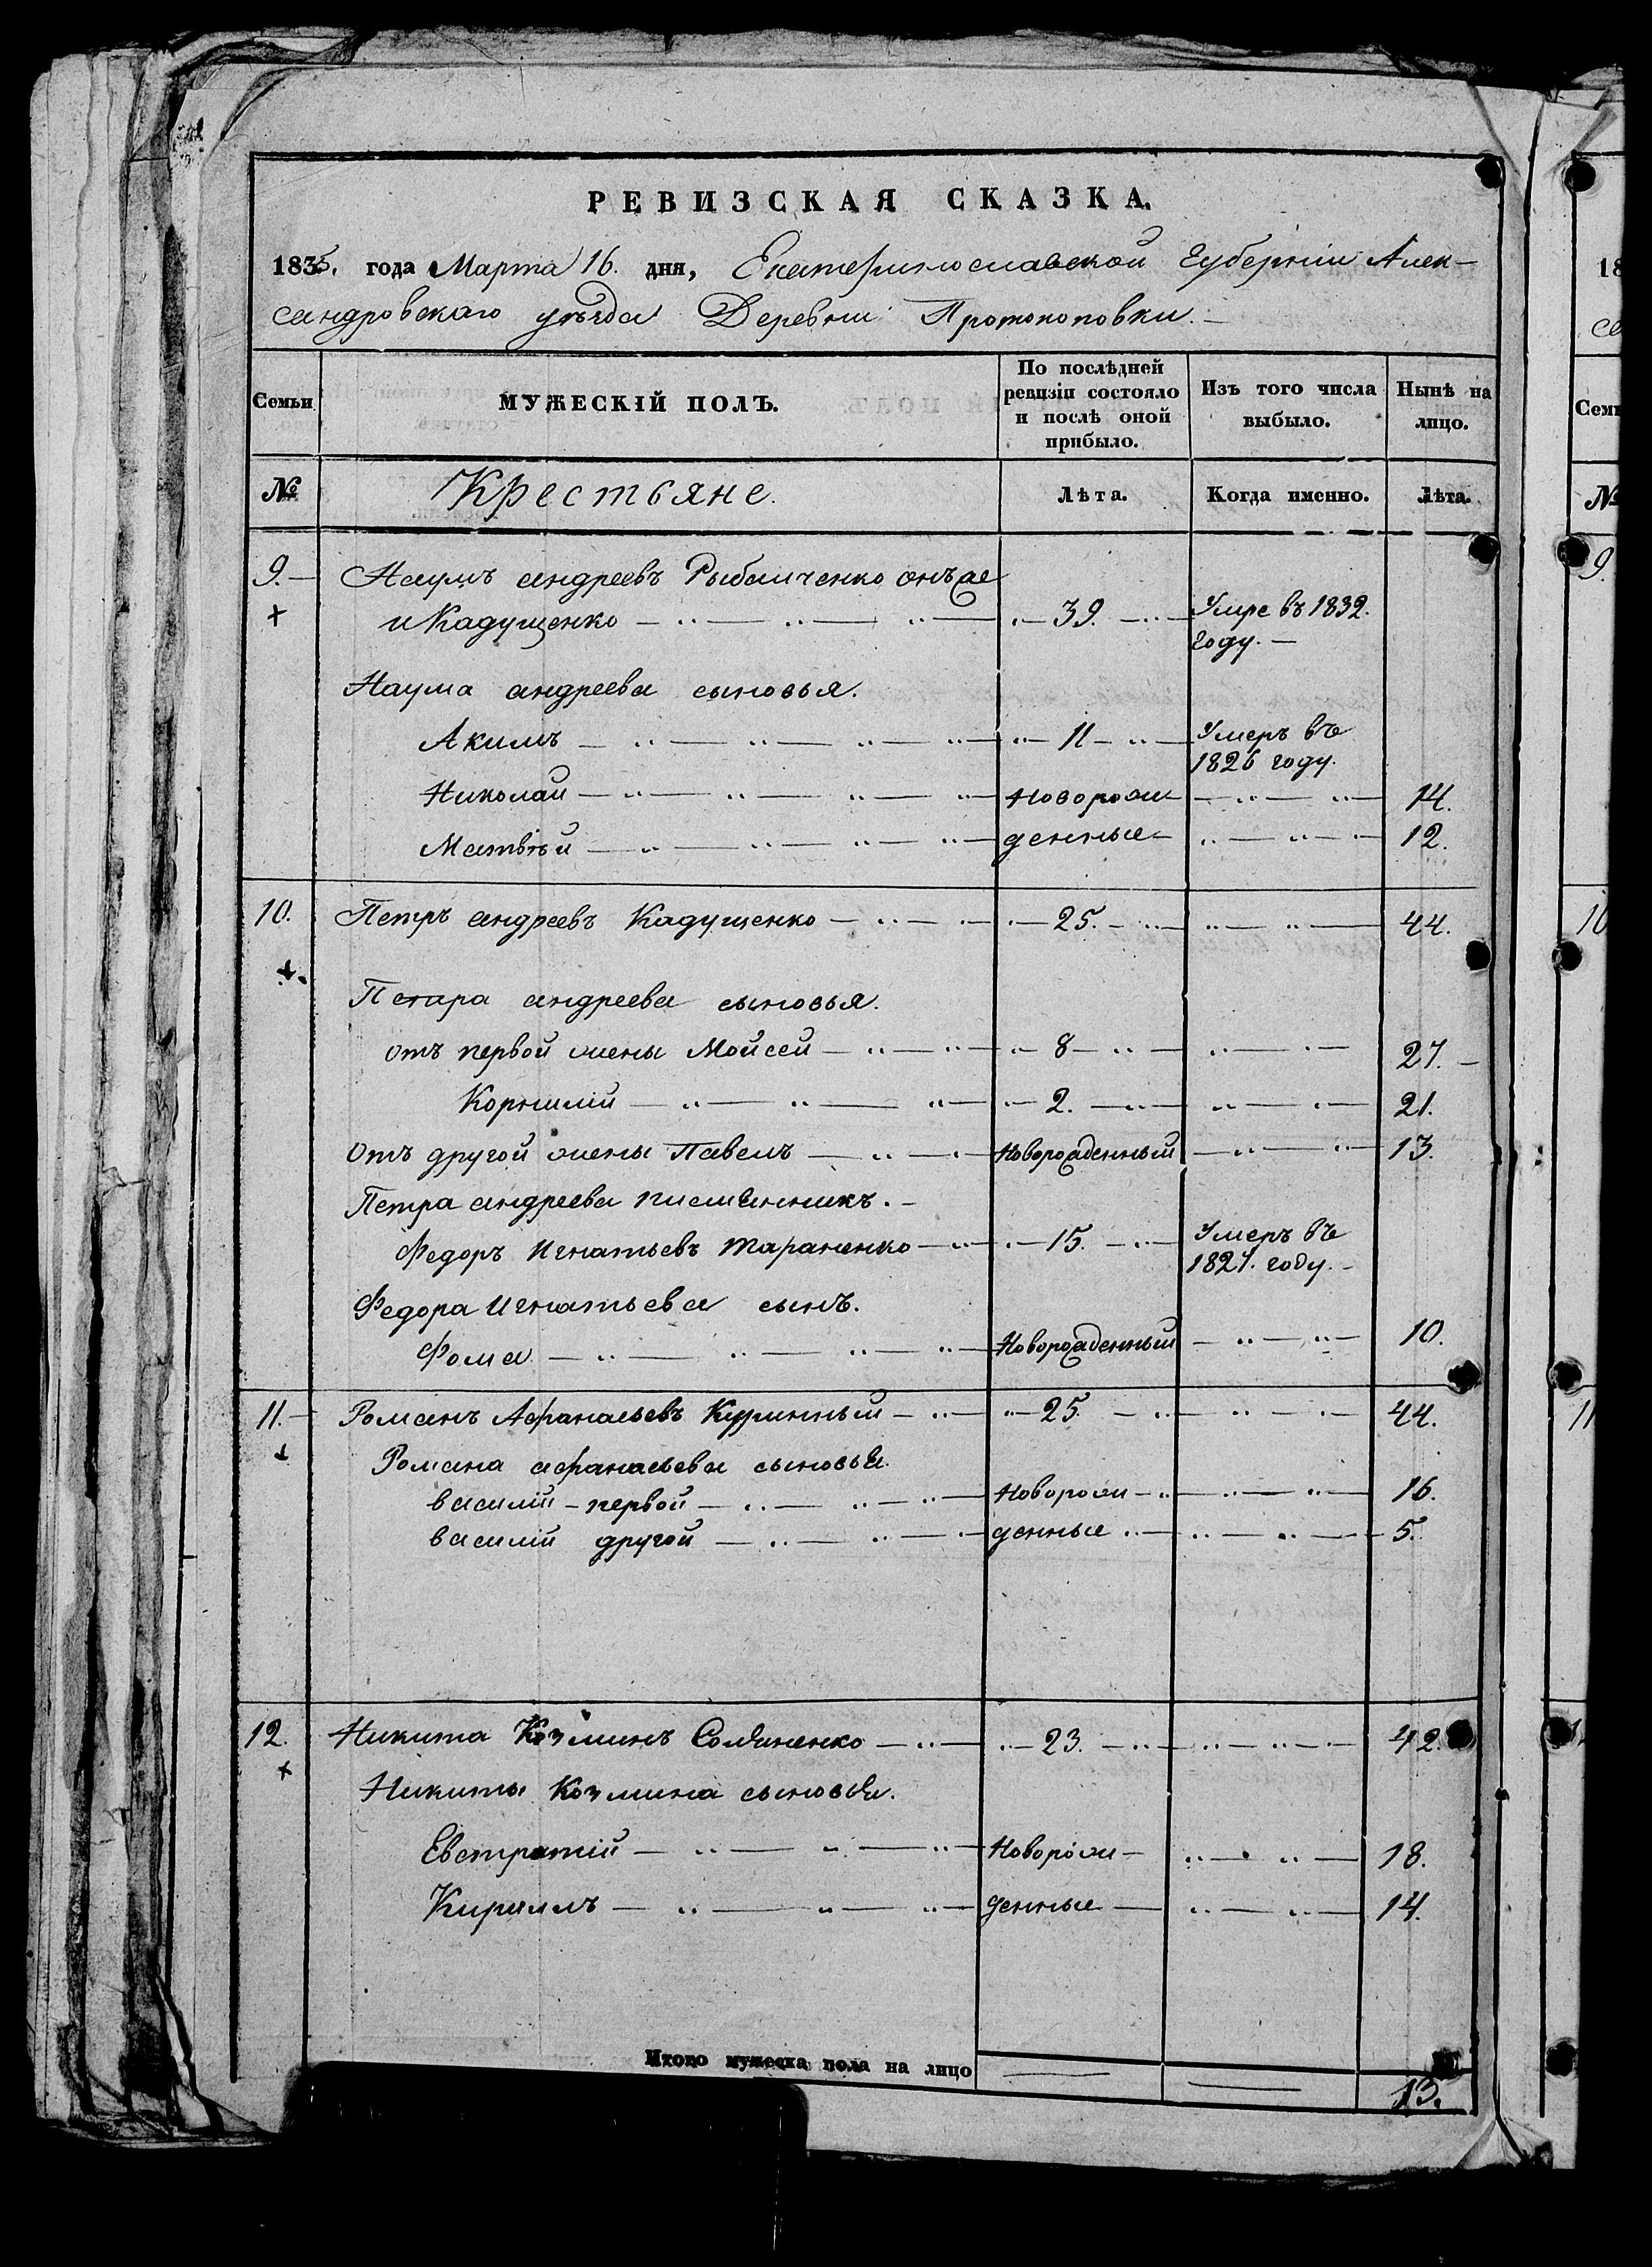 РЕВИЗСКАЯ СКАЗКА.
1835. года Марта 16. дня, Екатеринославской Губернии Алек-
сандровскаго уѣзда Деревни Протопоповки.
Семьи
МУЖЕСКІЙ ПОЛЪ.
По послѣдней ревизіи состояло и послѣ оной прибыло.
Изъ того числа выбыло.
Нынѣ на лицо.
№ Крестьяне. Лѣта. Когда именно. Лѣта.
9. Наумъ андреевъ Рыбалченко онъже
и Кадущенко 39. Умре въ 1832.
году.
Наума андреева сыновья.
Акимъ 11 Умеръ въ
1826 году.
Николай Новорож- 14.
Матвѣй денные 12.
10. Петръ андреевъ Кадущенко 25. 44.
Петара андреева сыновья.
отъ первой жены Мойсей 8 27.
Корнилій 2. 21.
Отъ другой жены Павелъ Новорожденный 13.
Петра андреева племянникъ.
Федоръ Игнатьевъ Тараненко 15. Умеръ въ
1827. году.
Федора Игнатьева сынъ.
Фома Новорожденный 10.
11. Романъ Афанасьевъ Куринный 25. 44.
Романа афанасьева сыновья
василій - первой Новорож- 16.
василій другой денные 5.
12. Никита Козминъ Соляненко 23. 42.
Никиты Козмина сыновья.
Евстратій Новорож- 18.
Кирилъ денные 14.
Итого мужеска пола на лицо 13.
18
се
Семь
№
9.
10
11